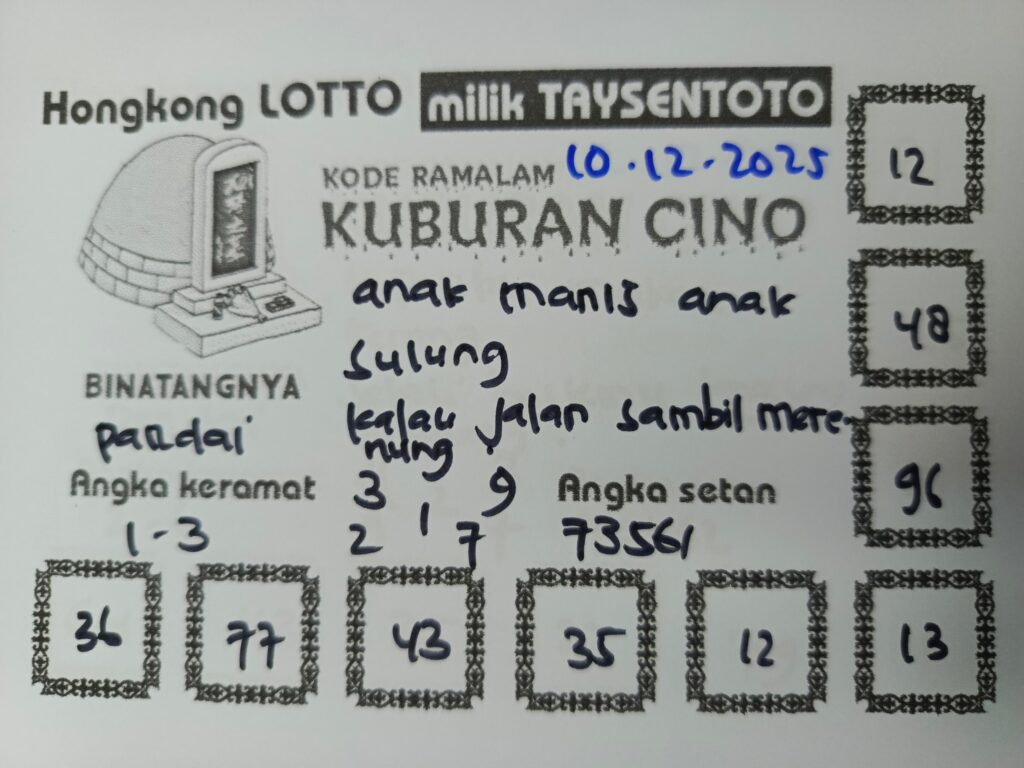 Hongkong LOTTO milik TAYSENTOTO
KODE RAMALAM 10.12.2025
KUBURAN CINO
anak manis anak
sulung
kalau jalan sambil mere-
nung
BINATANGNYA
pandai
Angka keramat
1-3
3 9
1
2 7
Angka setan
73561
12
48
96
36 77 43 35 12 13